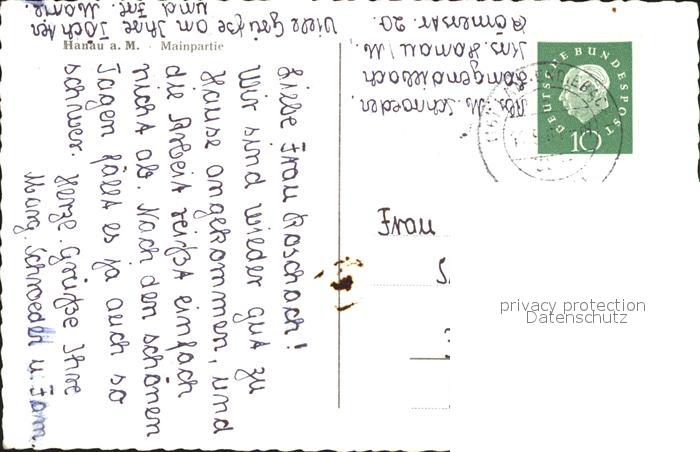 Hanau a. M. · Mainpartie
Liebe Frau Roschach!
Wir sind wieder gut zu
Hause angekommen, und
die Arbeit reißt einfach
nicht ab. Nach den schönen
Tagen fällt es ja auch so
schwer. Herzl. Grüße Ihre
Marg. Schroeder u. Fam.
Viele Grüße an Ihre Tochter
und Frl.
Abs. M. Schroeder.
Langendiebach
Krs. Hanau/M.
Römerstr. 20.
DEUTSCHE BUNDESPOST
10
Frau
privacy protection
Datenschutz